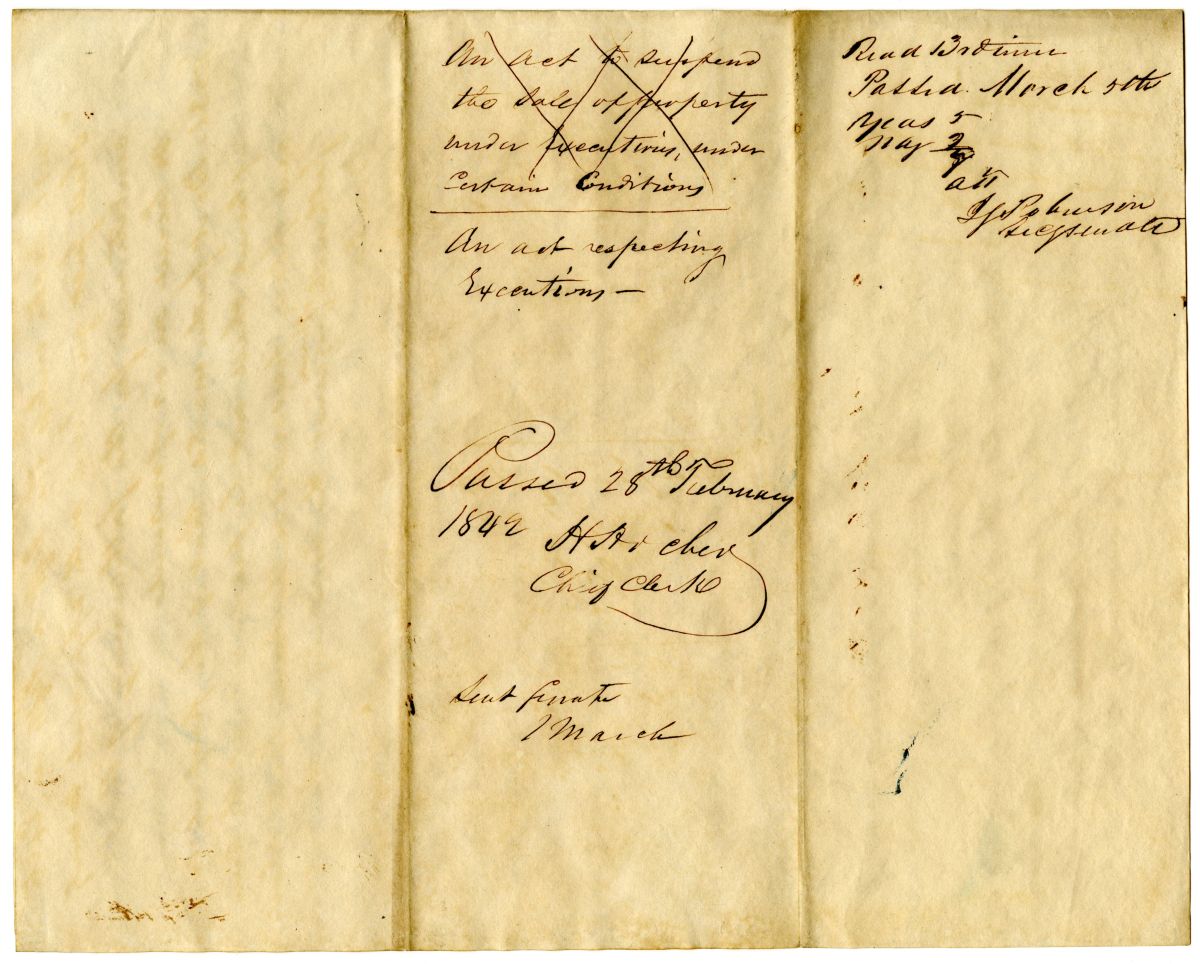 An act to suspend
the sale of property
under Executions, under
Certain Conditions
An act respecting
Executions —
Passed 28th February
1842
H Archer
Chief Clerk
Sent Senate
1 March
Read 3rd time
Passed March 5th
yeas 5
nay 2
att
Robinson
Secy Senate